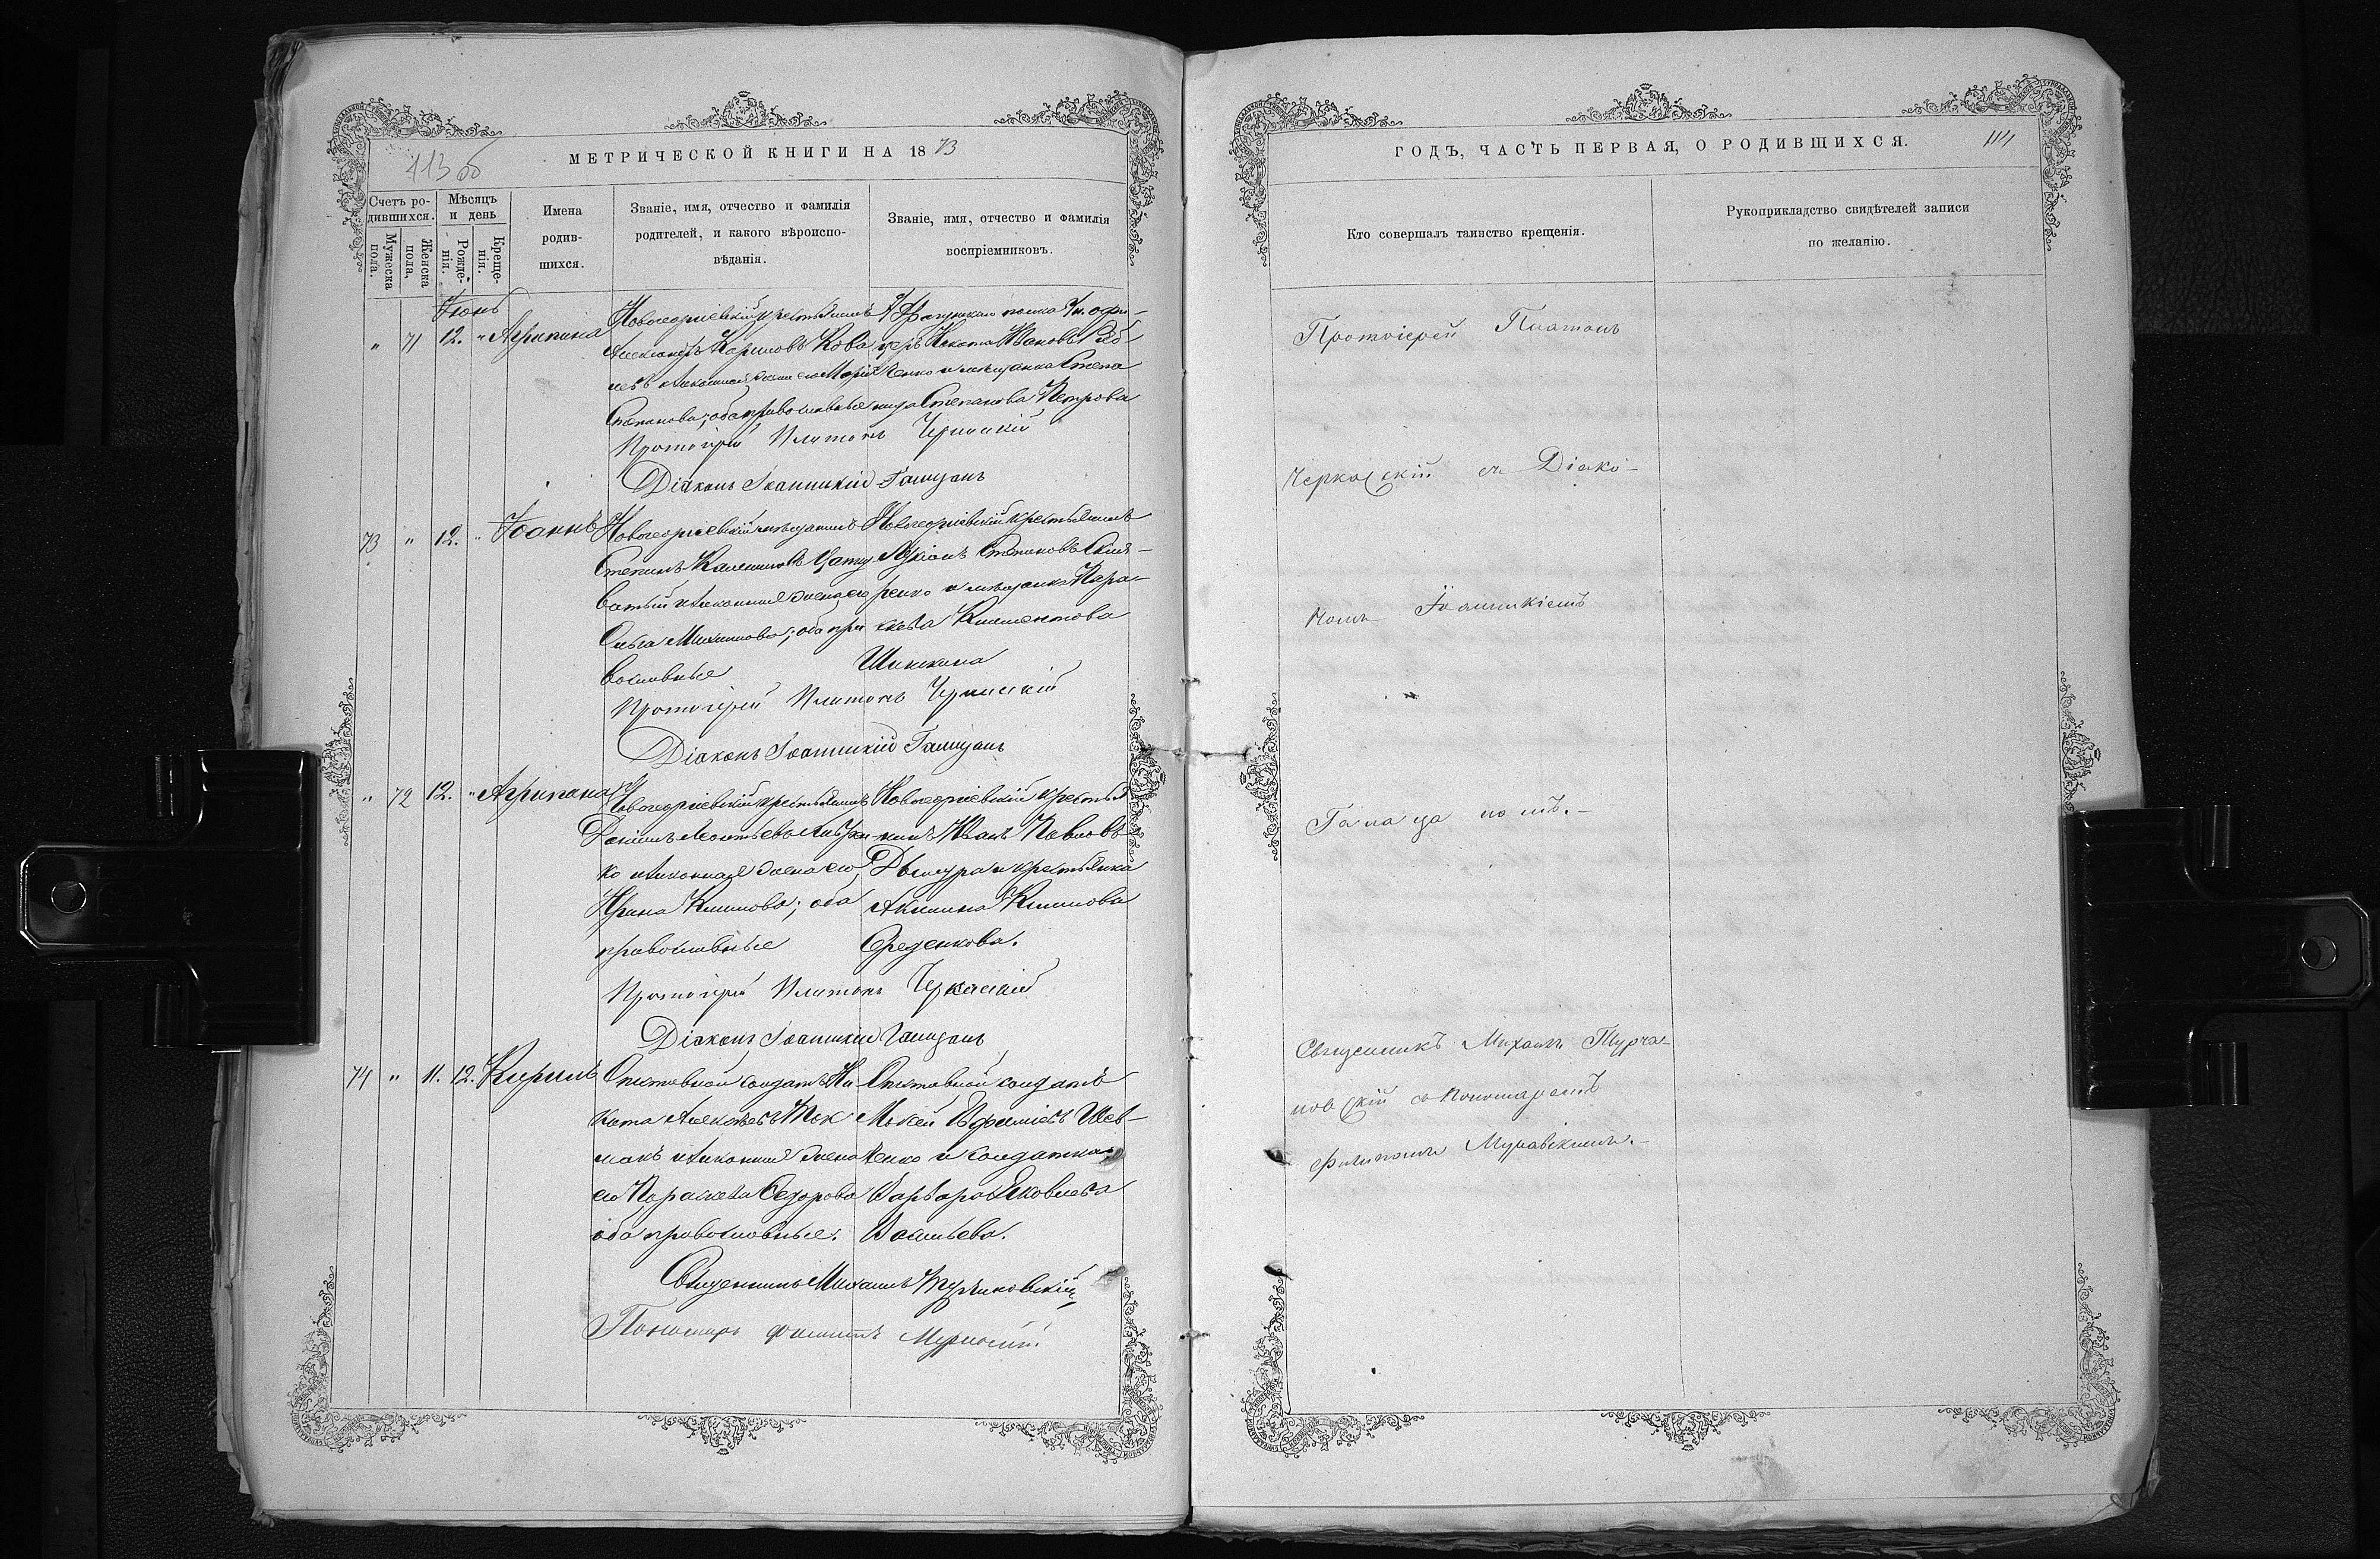 113 об
МЕТРИЧЕСКОЙ КНИГИ НА 1873
Счетъ родившихся.
Мужеска пола.
Женска пола.
Мѣсяцъ и день
Рожденія.
Крещенія.
Имена
родив-
шихся.
Званіе, имя, отчество и фамилія
родителей, и какого вѣроиспо-
вѣданія.
Званіе, имя, отчество и фамилія
воспріемниковъ.
Іюнь
" 71 12. " Агрипина
Новогеоргіевскій крестьянинъ
Александръ Карповъ Кова
левъ и законная жена его Марія
Степанова; оба православные
полка Ун. офи-
церъ Никита Ивановъ Ряб-
ченко и мѣщанка Степа
нида Степанова Петрова
Протоіерей Платонъ Черкасскій
Діаконъ Іоанникій
73 " 12. " Іоаннъ
Новогеоргіевскій мѣщанинъ
Степанъ
ватый и законная жена его
Ольга Михаилова; оба пра
вославные
Новогеоргіевскій крестьянинъ
Степановъ
ренко и мѣщанка Пара-
скева Климентова
Шишкина
Протоіерей Платонъ Черкасскій
Діаконъ Іоанникій
" 72 12. " Агрипина
Новогеоргіевскій крестьянинъ
Леонтьевъ
ко и законная жена его
Ирина Климова; оба
православные
Новогеоргіевскій крестья
нинъ Иванъ Павловъ
и крестьянка
Акилина Климова
Середенкова.
Протоіерей Платонъ Черкасскій
Діаконъ Іоанникій
74 " 11. 12. Кирилъ
Отставной солдатъ Ни
кита Алексѣевъ Ток
макъ и законная жена
его Параскева Федорова
оба православные.
Отставной солдатъ
Мокей Ефимовъ Шев-
ченко и солдатка
Варвара Яковлева
Васильева.
Священникъ Михаилъ Турчановскій
Пономарь Филиппъ
ГОДЪ, ЧАСТЬ ПЕРВАЯ, О РОДИВШИХСЯ.
114
Кто совершалъ таинство крещенія.
Рукоприкладство свидѣтелей записи
по желанію.
Протоіерей Платонъ
Черкасскій съ Діако-
номъ Іоанникіемъ
Священникъ Михаилъ Турча-
новскій съ Пономаремъ
Филипомъ